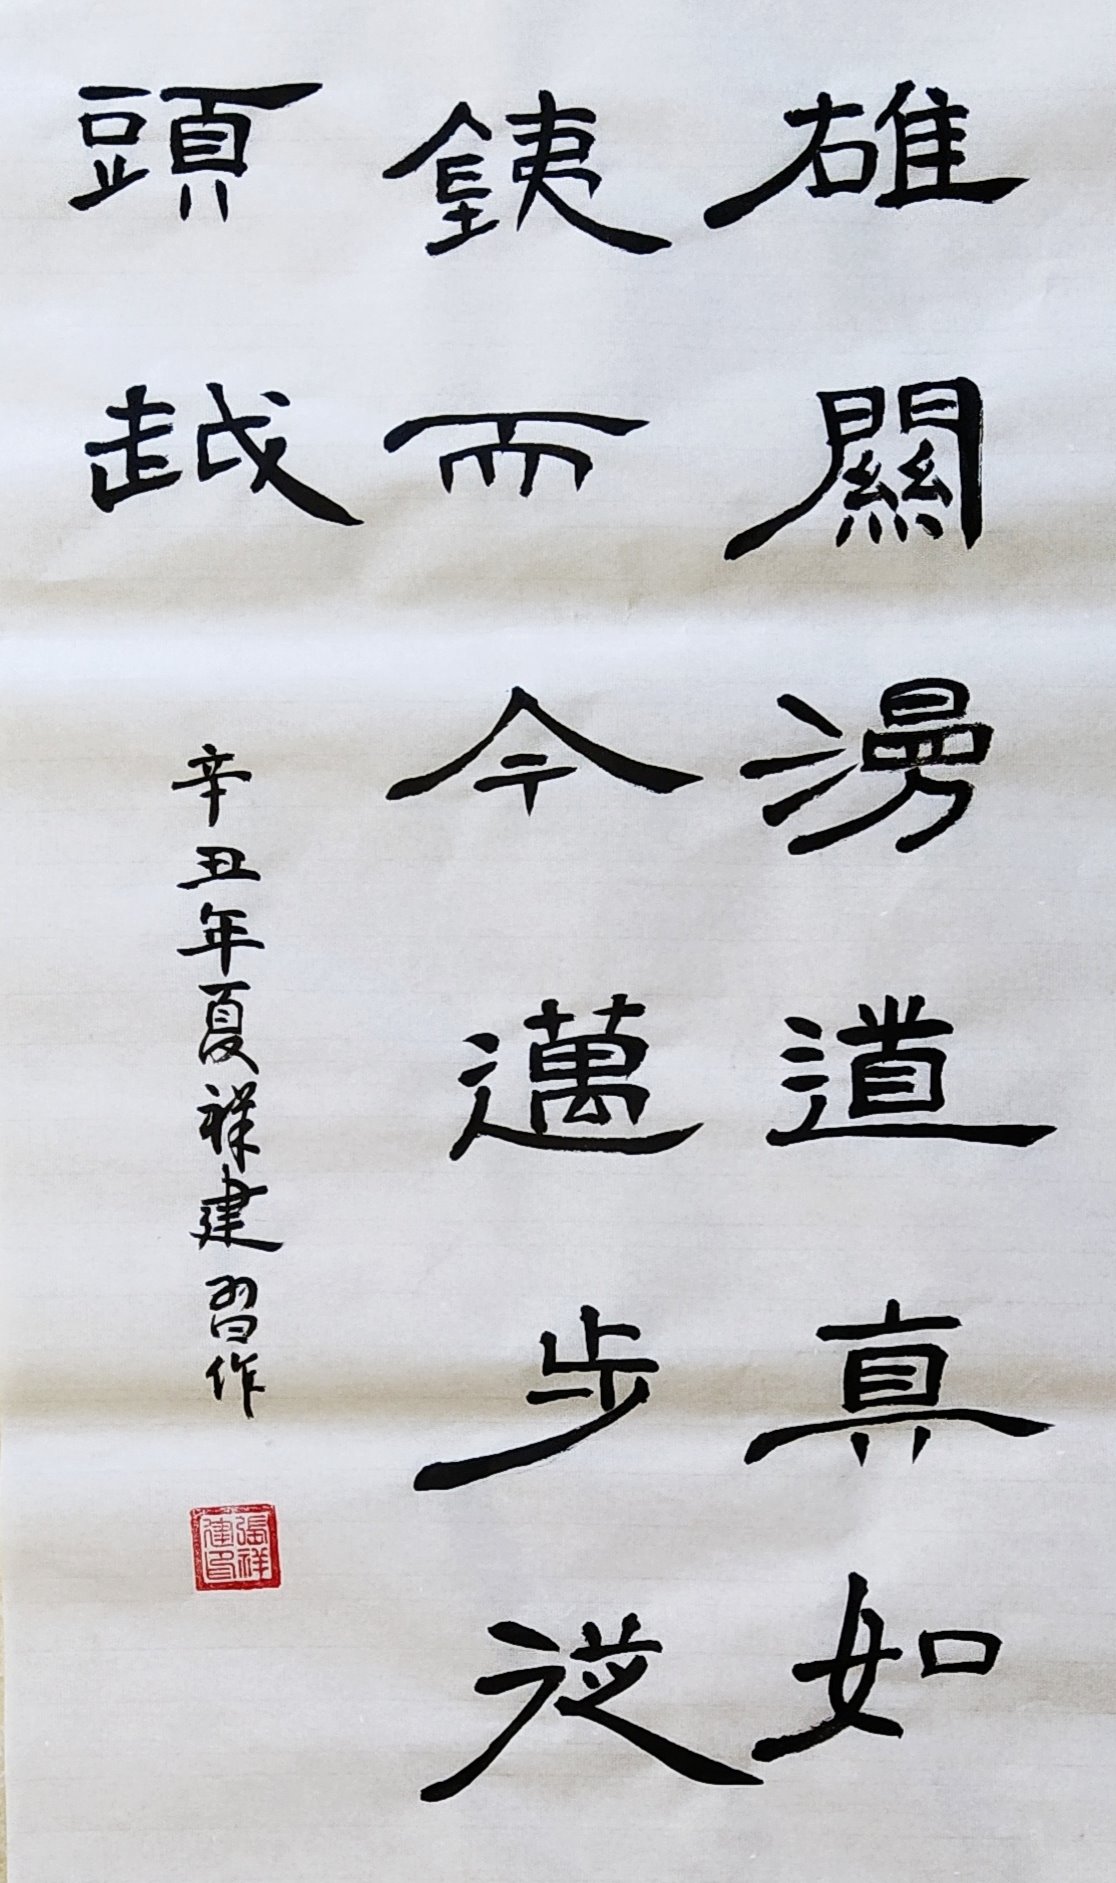 雄關漫道真如
銕而今邁步從
頭越
辛丑年夏祥建習作
張祥建印